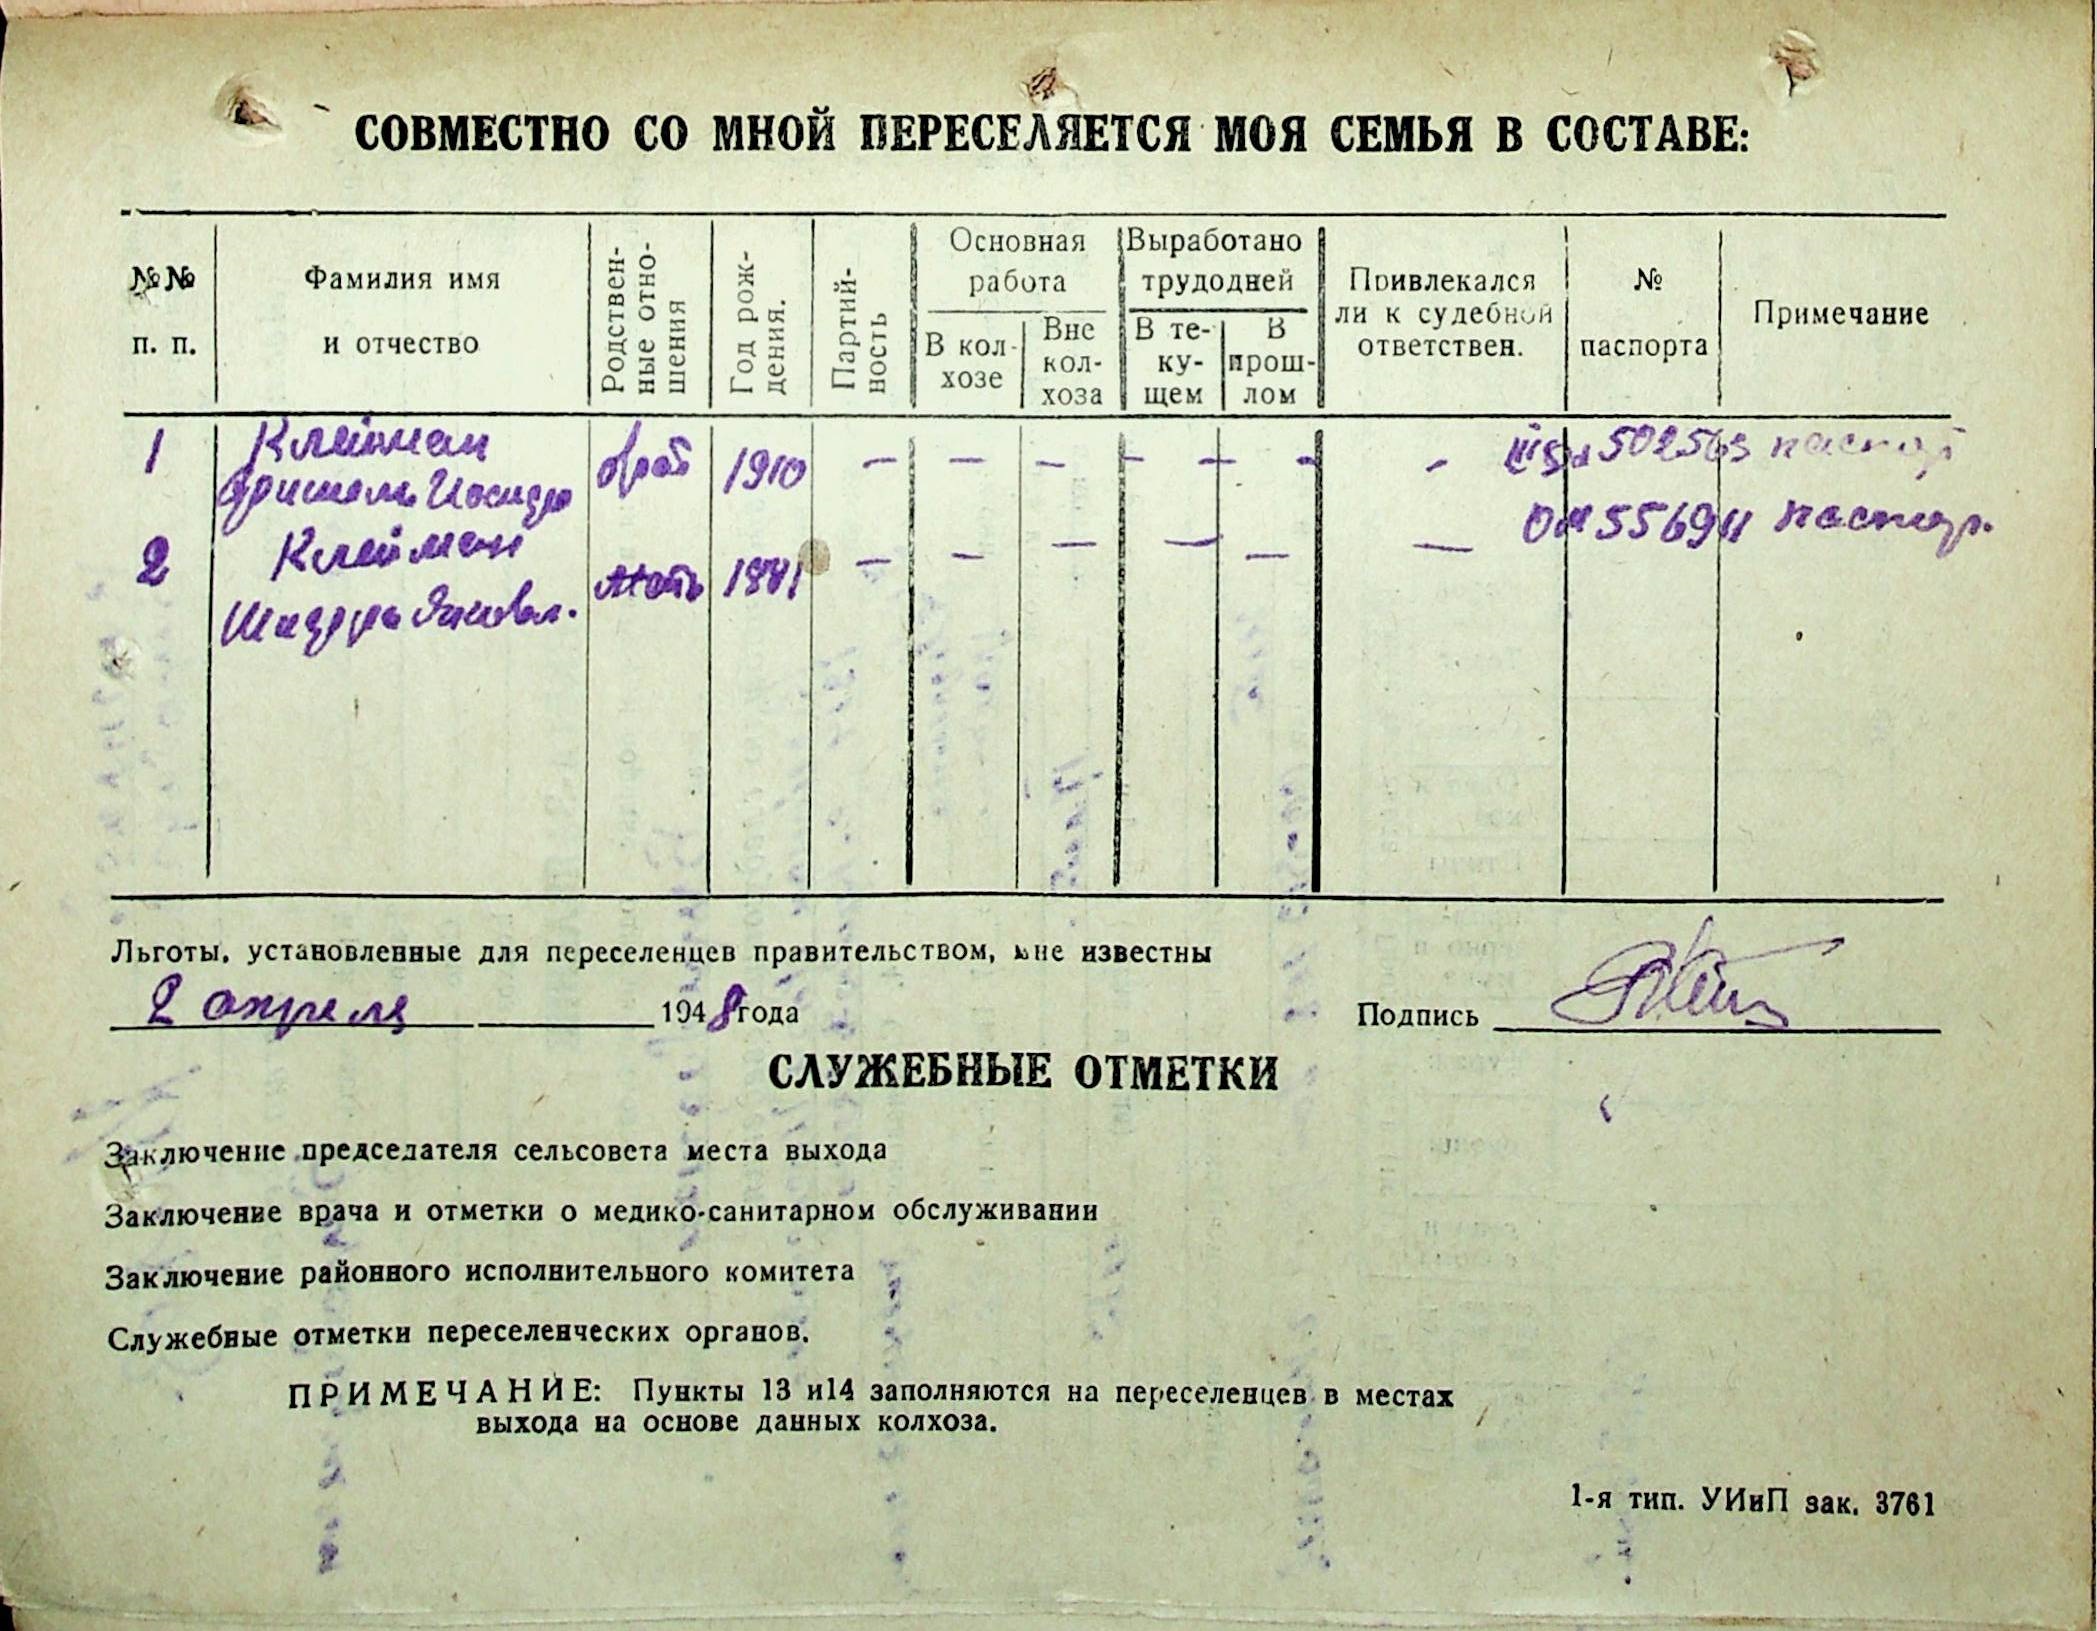 СОВМЕСТНО СО МНОЙ ПЕРЕСЕЛЯЕТСЯ МОЯ СЕМЬЯ В СОСТАВЕ:
№№ п. п.
Фамилия имя и отчество
Родствен-ные отно-шения
Год рож-дения.
Партий-ность
Основная работа
В кол-хозе
Вне кол-хоза
Выработано трудодней
В те-ку-щем
В прош-лом
Привлекался ли к судебной ответствен.
№ паспорта
Примечание
1 Клейман брат 1910 – – – – – – – 502563 паспорт
2 Клейман мать 1881 – – – – – – 55694 паспор.
Льготы, установленные для переселенцев правительством, мне известны
2 апреля 1948 года Подпись
СЛУЖЕБНЫЕ ОТМЕТКИ
Заключение председателя сельсовета места выхода
Заключение врача и отметки о медико-санитарном обслуживании
Заключение районного исполнительного комитета
Служебные отметки переселенческих органов.
ПРИМЕЧАНИЕ: Пункты 13 и14 заполняются на переселенцев в местах
выхода на основе данных колхоза.
1-я тип. УИиП зак. 3761